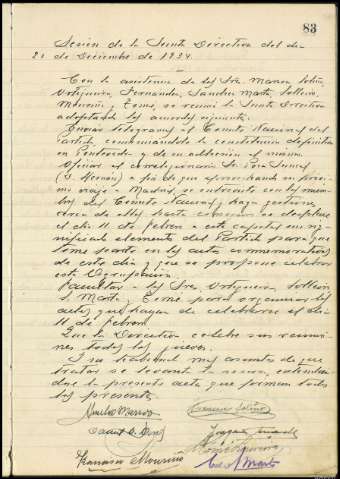 83
Sesión de la Junta Directiva del día
21 de Diciembre de 1934.
Con la asistencia de los Sres. Marcos Soliño,
Ortigueira, Fernández, Sánchez Marta,
Mouriño, se reunió la Junta Directiva
adoptando los acuerdos siguientes:
Enviar telegrama al Comité Nacional del
Partido, comunicándole la constitución definitiva
en Pontevedra y de su adhesión al mismo.
Oficiar al correligionario de
a fin de que aprovechando su próxi-
mo viaje a Madrid, se entreviste con los miem-
bros del Comité Nacional y haga gestiones
cerca de ellos hasta conseguir se desplace
el día 11 de Febrero a esta capital un sig-
nificado elemento del Partido para que
tome parte en los actos conmemorativos
de este día y que se propone celebrar
esta Agrupación.
Facultar a los Sres. Ortigueira,
S. Marta y para organizar los
actos que hayan de celebrarse el día
11 de Febrero.
Que la Directiva celebre sus reunio-
nes todos los jueves.
Y no habiendo más asuntos de que
tratar se levantó la sesión, extendién-
dose la presente acta que firman todos
los presentes.
Francisco Mouriño